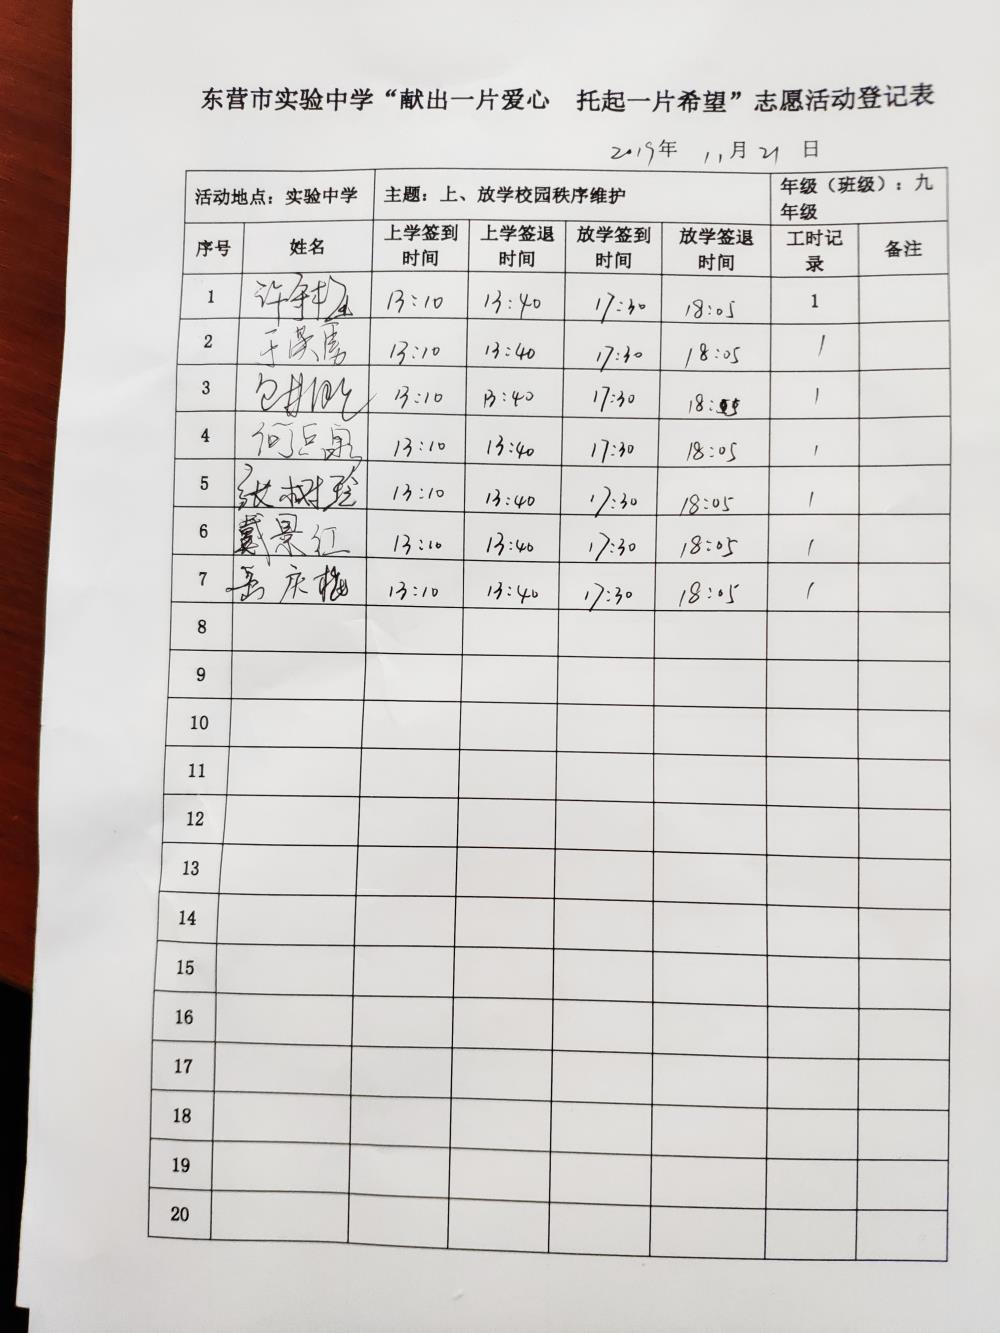 东营市实验中学“献出一片爱心 托起一片希望”志愿活动登记表
2019年 11月21 日
活动地点：实验中学 主题：上、放学校园秩序维护 年级（班级）：九年级
序号 姓名 上学签到时间 上学签退时间 放学签到时间 放学签退时间 工时记录 备注
1 13:10 13:40 17:30 18:05 1
2 13:10 13:40 17:30 18:05 1
3 13:10 13:40 17:30 18:05 1
4 13:10 13:40 17:30 18:05 1
5 张树玲 13:10 13:40 17:30 18:05 1
6 戴景红 13:10 13:40 17:30 18:05 1
7 岳庆梅 13:10 13:40 17:30 18:05 1
8
9
10
11
12
13
14
15
16
17
18
19
20